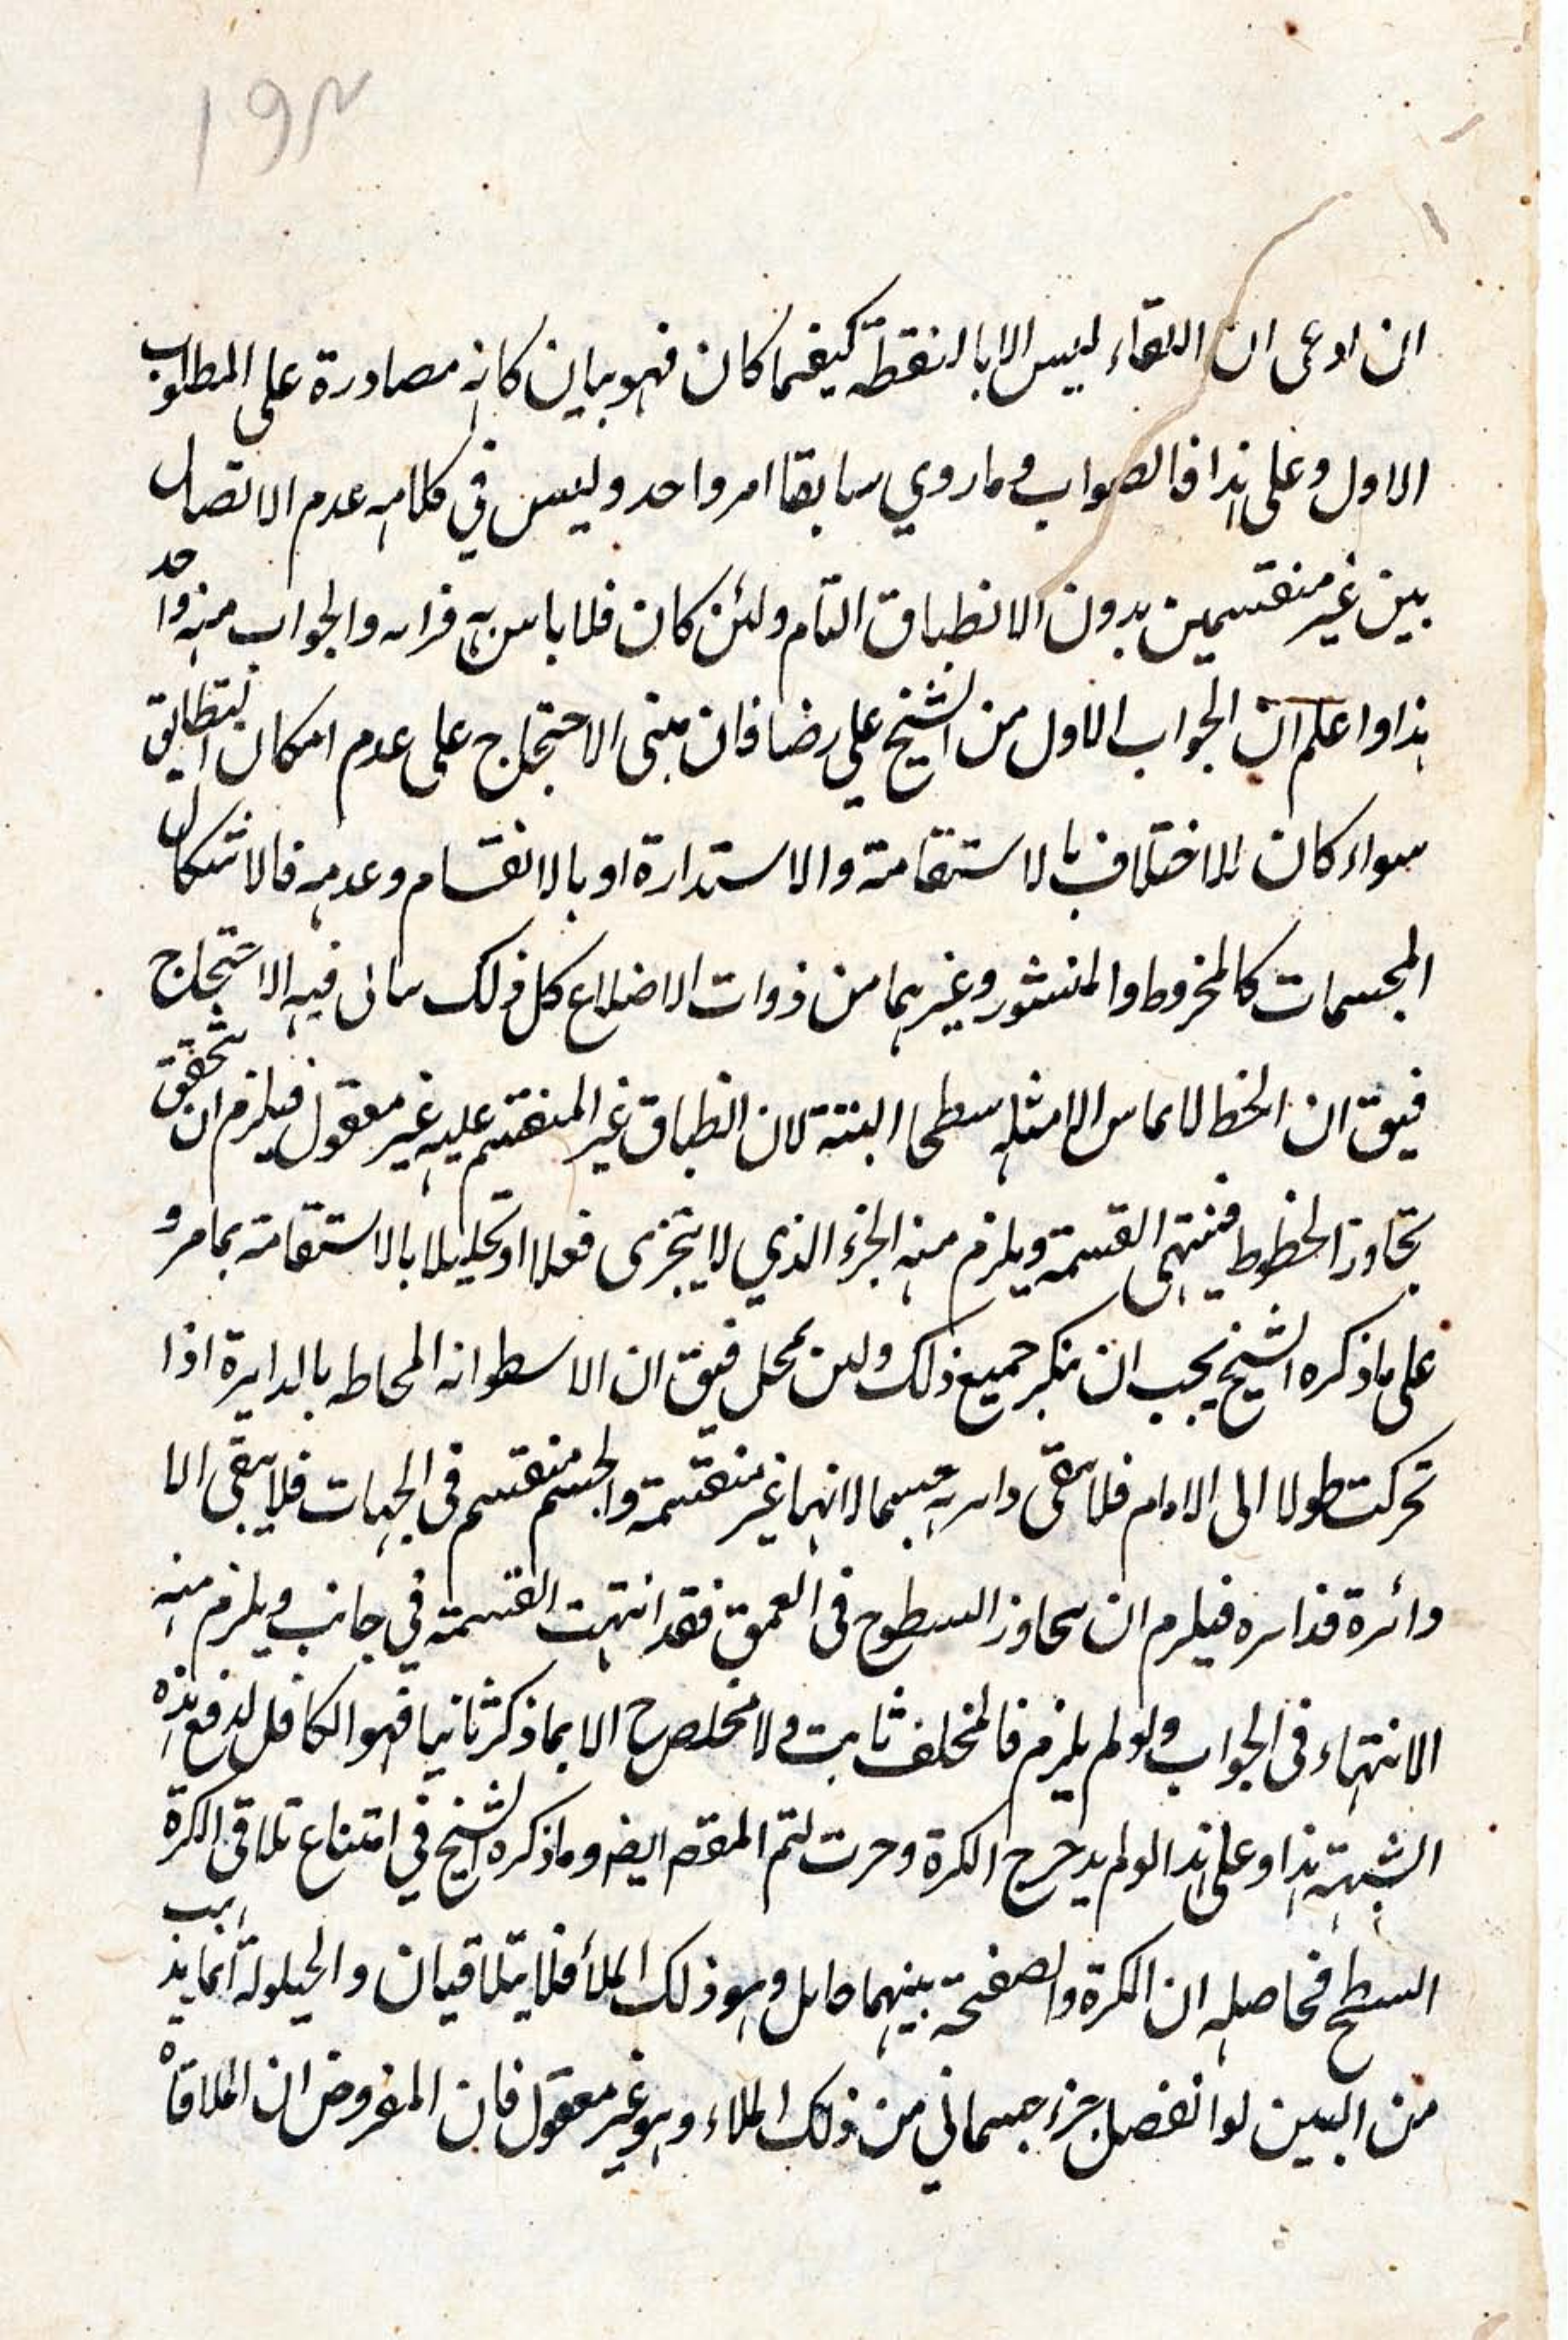 ١٩٣
ان ادعى ان اللقاء ليس الا بالنقطة كيفما كان فهو بيان كانه مصادرة على المطلوب
الاول وعلى هذا فالصواب وما روي سابقا امر واحد وليس في كلامه عدم الاتصال
بين غير منقسمين بدون الانطباق التام ولئن كان فلا باس به فراه والجواب منه واحد
هذا واعلم ان الجواب الاول من الشيخ على رضا فان مبنى الاحتجاج على عدم امكان التطابق
سواء كان الاختلاف بالاستقامة والاستدارة او بالانقسام وعدمه فالاشكال
المجسمات كالمخروط والمنشور وغيرهما من ذوات الاضلاع كل ذلك ياتى فيه الاحتجاج
فيق ان الخط لا يماس الا مثله سطحا البتة لان انطباق غير المنقسم عليه غير معقول فيلزم ان يتحقق
تجاوز الخطوط فينتهى القسمة ويلزم منه الجزء الذي لا يتجزى فعلا او تحليلا بالاستقامة بما مر و
على ما ذكره الشيخ يجب ان ينكر جميع ذلك ولئن يمحل فيق ان الاسطوانه المحاطه بالدايرة اذا
تحركت طولا الى الامام فلا يبقى دايرته جسما لانهما غير منقسمة والجسم منقسم فى الجهات فلا يبقى الا
دائرة فدايره فيلزم ان يتجاوز السطوح فى العمق فقد انتهت القسمة في جانب ويلزم منه
الانتهاء فى الجواب ولو لم يلزم فالمخلف ثابت ولا مخلص ح الا بما ذكر ثانيا فهو الكافل لدفع هذه
الشبهة هذا وعلى هذا لو لم يدحرج الكرة وجرت لتم المقصم ايضم وما ذكره الشيخ في امتناع تلاقى الكرة
السطح فحاصله ان الكرة والصفحة بينهما حايل وهو ذلك الملأ فلا يتلاقيان والحيلولة انما يذهب
من البين لو انفصل جزء جسماني من ذلك الملاء وهو غير معقول فان المفروض ان الملاقاة